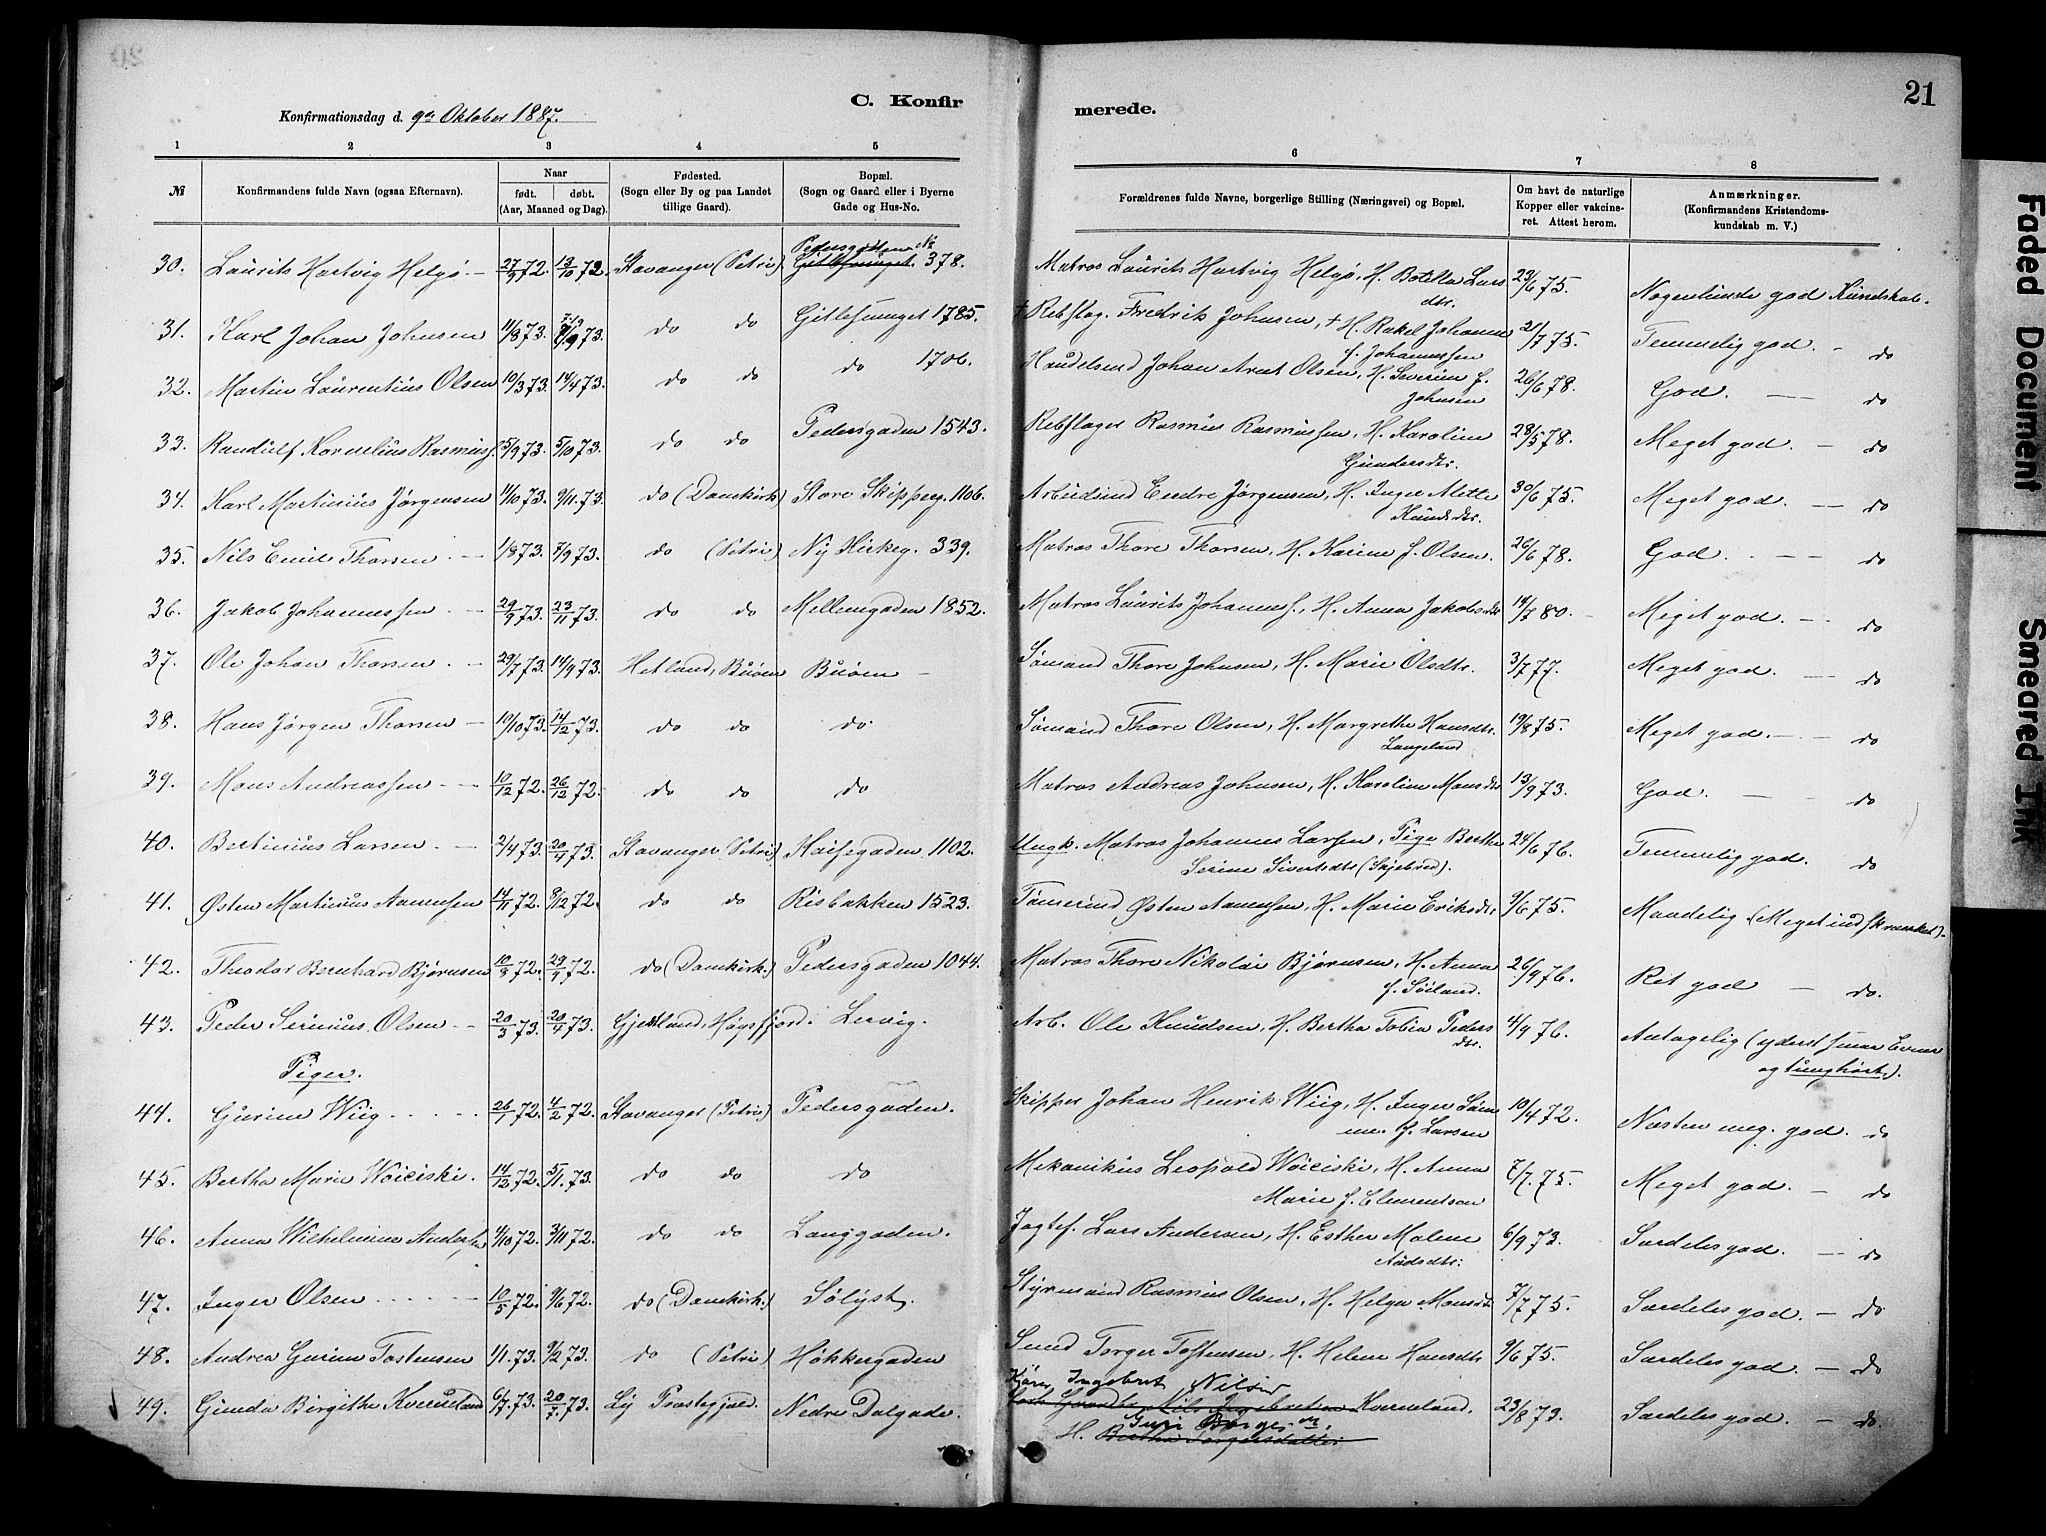 21
C. Konfir merede.
Konfirmationsdag d. 9de Oktober 1887.
1 2 3 4 5 6 7 8
№ Konfirmandens fulde Navn (ogsaa Efternavn). Naar født. døbt. (Aar, Maaned og Dag). Fødested. (Sogn eller By og paa Landet tillige Gaard). Bopæl. (Sogn og Gaard eller i Byerne Gade og Hus-No. Forældrenes fulde Navne, borgerlige Stilling (Næringsvei) og Bopæl. Om havt de naturlige Kopper eller vakcineret. Attest herom. Anmærkninger. (Konfirmandens Kristendomskundskab m. V.)
30. Laurits Hartvig Helgø 27/9 72. 13/10 72. Stavanger (Petri). Pedersgaden № 378. Matros Laurits Hartvig Helgø, H. Botilla Larsdtr. 23/6 75. Nogenlunde god Kundskab.
31. Karl Johan Johnsen 11/8 73. 7/9 73. do do Gitlesmuget 1785. † Rebslag. Fredrik Johnsen, † H. Rakel Johanne f. Johannessen 21/7 75. Temmelig god. do
32. Martin Laurentius Olsen 10/3 73. 14/4 73. do do do 1706. Handelsmd Johan Arnt Olsen, H. Severine f. Johnsen 26/6 78. God. do
33. Randulf Kornelius Rasmuss. 5/9 73. 5/10 73. do do Pedersgaden 1543. Rebslager Rasmus Rasmussen, H. Karoline Gundersdtr. 28/5 78. Meget god. do
34. Karl Martinius Jørgensen 11/10 73. 9/11. 73. do (Domkirk.) Store Skipperg. 1106. Arbeidsmd Endre Jørgensen, H. Inger Mette Knudsdtr. 30/6 75. Meget god. do
35. Nils Emil Thorsen 1/8 73. 7/9 73. do (Petri) Ny Kirkeg. 339. Matros Thore Thorsen, H. Karine f. Olsen. 26/6 78. God. do
36. Jakob Johannessen 29/9 73. 23/11 73. do do Mellemgaden 1852. Matros Laurits Johanness., H. Anna Jakobsdtr 14/7 80. Meget god. do
37. Ole Johan Thorsen 29/7 73. 14/9 73. Hetland, Buøen Buøen Sømand Thore Johnsen, H. Marie Olsdtr. 3/7 77. Meget god. do
38. Hans Jørgen Thorsen 10/10 73. 14/12 73. do do do Sømand Thore Olsen, H. Margrethe Hansdtr. Langeland 19/8 75. Meget god. do
39. Mons Andreassen 10/12 72. 26/12 72. do do do Matros Andreas Johnsen, H. Karoline Monsdtr 13/9 73. God. do
40. Bertinius Larsen 2/4 73. 20/4 73. Stavanger (Petri) Kaisegaden 1102. Ungk. Matros Johannes Larsen, Pige Berthe Serine Sivertsdtr (Skjebred). 24/6 76. Temmelig god. do
41. Østen Martinius Aamensen 14/11 72. 8/12 72. do do Risbakken 1523. Tømmermd Østen Aamensen, H. Marie Eriksdtr 9/6 75. Maadelig (Meget indskrænket).
42. Theodor Bernhard Bjørnsen 10/8 72. 29/9 72. do (Domkirk.) Pedersgaden 1044. Matros Thore Nikolai Bjørnsen, H. Anna f. Søiland. 26/9 76. Ret god do.
43. Peder Serinius Olsen 20/3 73. 20/4 73. Høgsfjord. Lervig. Arb. Ole Knudsen, H. Bertha Tobia Pedersdtr. 4/9 76. Antagelig (yderst smaa Evner og tunghørt).
Piger.
44. Gurine Wiig 26/1 72. 4/2 72. Stavanger (Petri) Pedersgaden. Skipper Johan Henrik Wiig, H. Inger f. Larsen 10/4 72. Næsten meg. god. do
45. Bertha Marie Woiciski. 14/12 72. 5/1. 73. do do do Mekanikus Leopold Woiciski, H. Anna Marie f. Clementsen 7/7. 75. Meget god. do
46. Anna Wilhelmine Andersen 4/10 72. 3/11 72. do do Langgaden. Jagtef. Lars Andersen, H. Esther Malene Aadsdtr. 6/9 73. Særdeles god. do
47. Inger Olsen 10/5 72. 9/6 72. do (Domkirk.) Sølyst. Styrmand Rasmus Olsen, H. Helga Monsdtr. 7/7 75. Særdeles god. do
48. Andrea Gurine Tostensen 1/1. 73. 9/2 73. do (Petri) Høkkergaden Smed Torger Tostensen, H. Helene Hansdtr 9/6 75. Særdeles god. do
49. Gunda Birgithe Kverneland 6/7 73. 20/7. 73. Ly Præstegjæld. Nedre Dalgade. Ingebret Nilsen Kverneland, H. Guri Borges dtr. 23/8 73. Særdeles god. do.
Faded Document
Smeared Ink